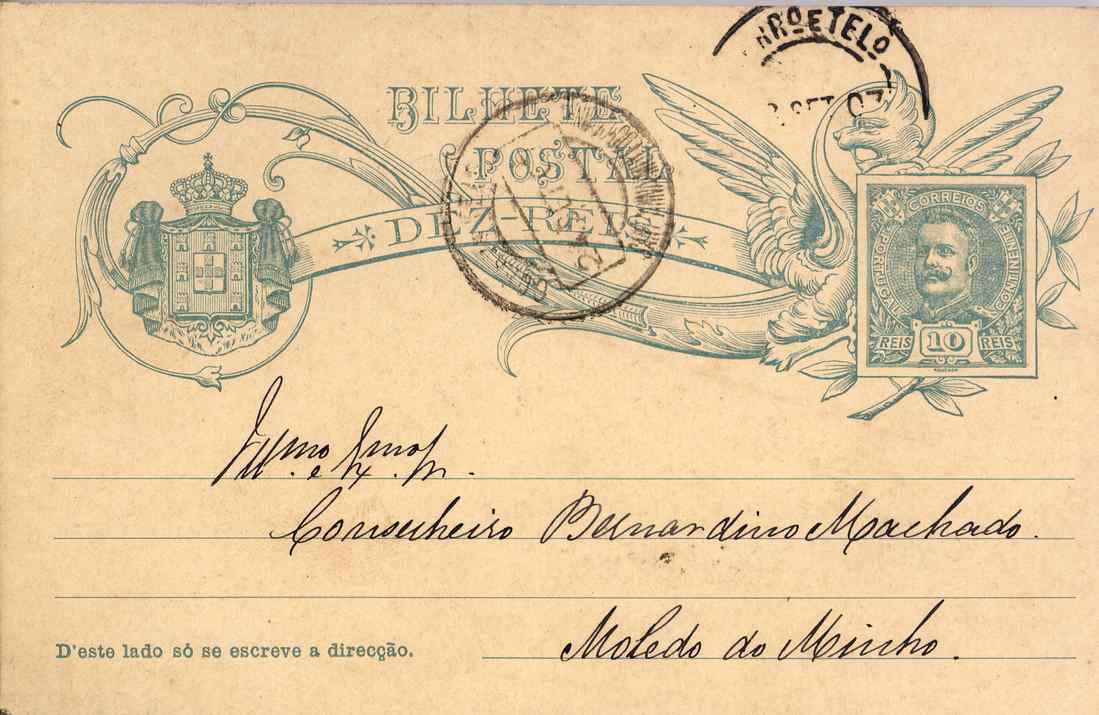 RROETELO
SET 07
BILHETE
POSTAL
DEZ-REIS
CORREIOS
PORTUGAL
CONTINENTE
REIS 10 REIS
Ill.mo e Ex.mo Sr.
Conselheiro Bernardino Machado.
Moledo do Minho.
D'este lado só se escreve a direcção.